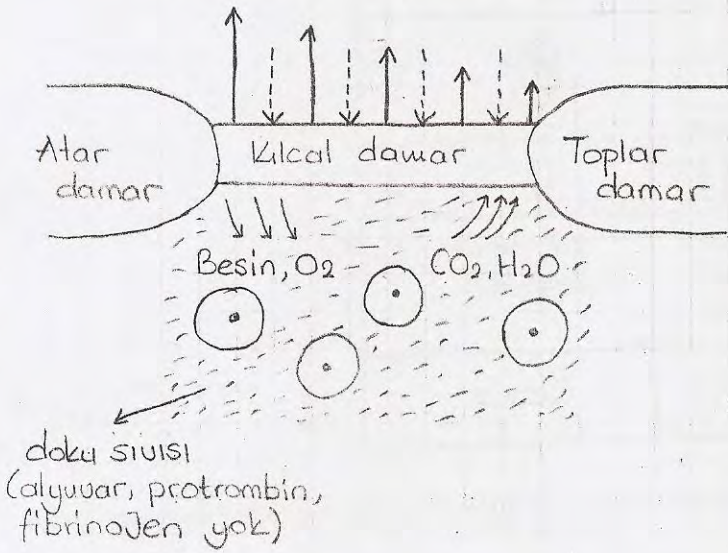 Atar
damar
Kılcal damar
Toplar
damar
Besin, O2
CO2, H2O
doku sıvısı
(alyuvar, protrombin,
fibrinojen yok)